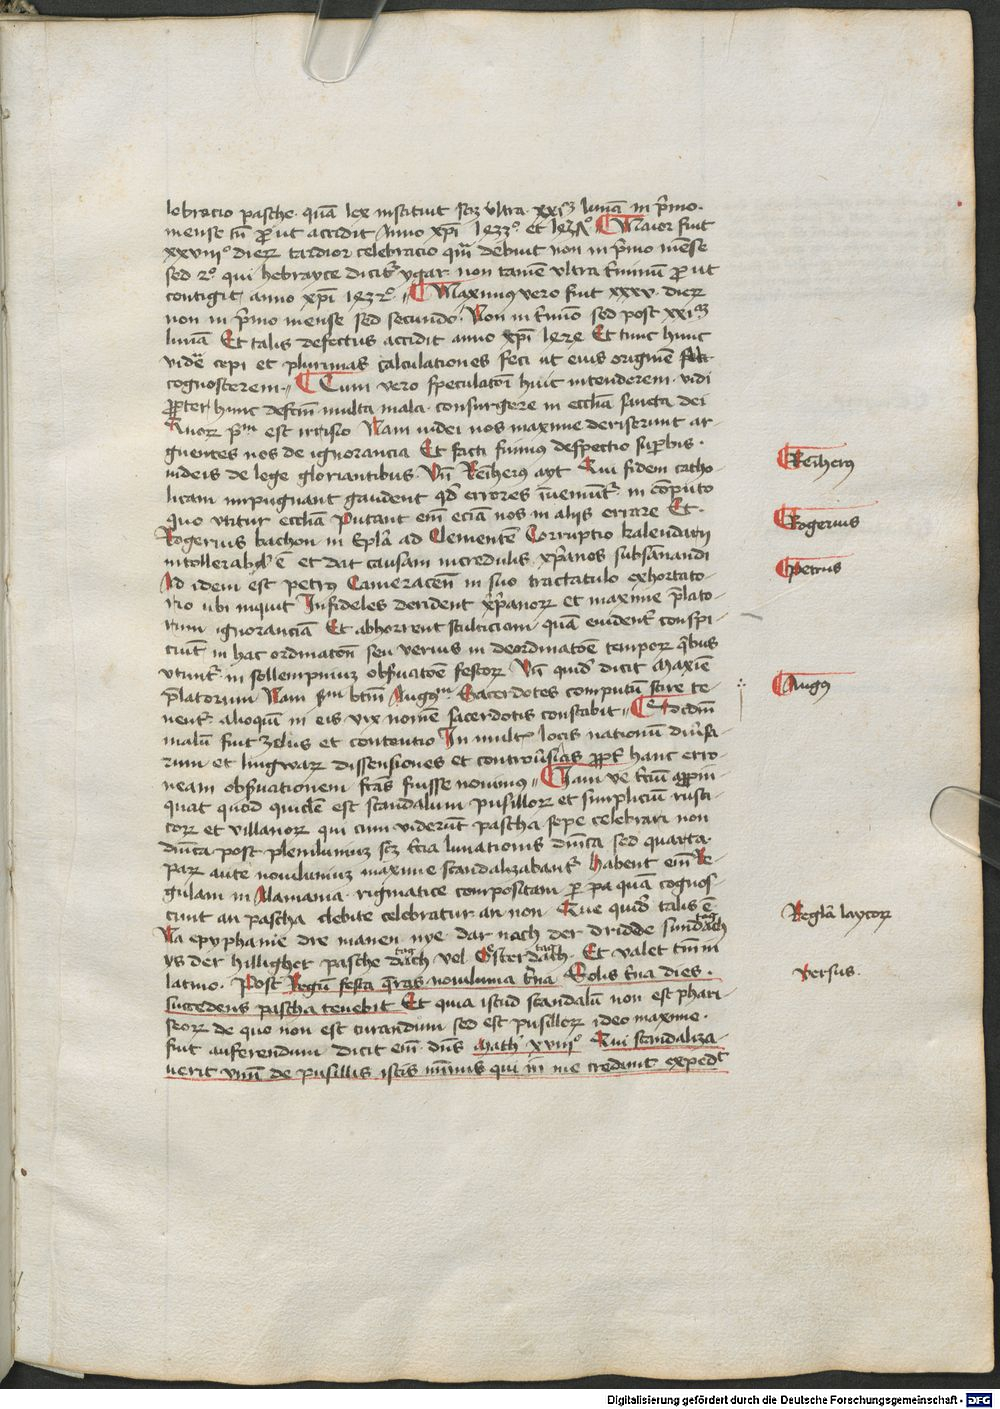 lebracio pasche quā lex instituit scꝫ vltra xxi lunā in p̄mo
mense sꝫ ꝓut accidit Anno xp̄i 1433º et 1437º Maior fuit
xxviiiº dieꝝ tardior celebracio qm̄ debuit non in p̄mo mēse
sed 2º qui hebrayce dicit᷑ ygar non tamē vltra t̄minū ꝓut
contigit anno xp̄i 1432º Maximꝰ vero fuit xxxv dieꝝ
non in p̄mo mense sed secundo Non in t̄mino sed post xxi
lunā Et talis defectus accidit anno xp̄i 1424 Et tunc hunc
vidē cepi et plurimas calculationes feci ut eius originē
cognoscerem Cum vero speculatōi huic intenderem vidi
ꝓpter hunc defcm̄ multa mala consurgere in eccl̄ia sancta dei
Quoꝝ p̄m est irrisio Nam iudei nos maxime deriserunt ar-
guentes nos de ignorancia Et facti fuimꝰ despectio suꝑbis
iudeis de lege gloriantibus Vn̄ Reiherꝰ ayt Qui fidem catho-
licam inpugnant gaudent qd̓ errores īueniunt᷑ in cōputo
quo vtitur eccl̄ia Putant em̄ eciā nos in aliis errare Et
Rogerius bachon in Ep̄la ad Clementē Corruptio kalendarij
intollerabil̓ ē et dat causam incredulis xp̄ianos subsānandi
Ad idem est petrꝰ Cameracēn in suo tractatulo exhortato-
rio ubi inquit Infideles derident xp̄ianoꝝ et maxime p̄lato-
rum ignoranciā Et abhorrent stulticiam quā euident᷑ conspi-
ciūt in hac ordinatōn seu verius in deordinatōe tempoꝝ q̄bus
vtunt᷑ in sollempniuꝫ obseruatōe festoꝝ Vn̄ quid̓ dicit Maxīe
p̄latorum Nam sm̄ btm̄ Augꝰ Sacerdotes computū scire te-
nent᷑ alioquin in eis vix nomē sacerdotis constabit Scdm̄
malū fuit zelus et contentio In multꝭ locis nationū diūsa-
rum et lingwaꝝ dissensiones et controūsias ꝓpt᷑ hanc erro-
neam obseruationem fc̄as fuisse nouimus Nam
quat quod quidē est scandalum pusilloꝝ et simpliciū rusti-
coꝝ et villanoꝝ qui cum viderūt pascha sepe celebrari non
dn̄ica post plenilumiuꝫ scꝫ t̄cia lunationis dn̄ica sed quarta
paꝝ ante nouilumiuꝫ maxime scandalizabant᷑ Habent em̄ Re-
gulam in Alamania rigmatice compositam ꝑ quā cognos-
cunt an pascha debite celebratur an non Que quid̓ talis ē
Na epyphanie dre manen nye dar nach der dridde sundach tag
ys der hillighet pasche dach tag vel Osterdach tag Et valet tm̄ in
latino Post Regū festa q̄ras nouilunia t̄na Solis t̄na dies
succedens pascha tenebit Et quia istud scandalū non est phari
seoꝝ de quo non est curandum sed est pusilloꝝ ideo maxime
fuit auferendum dicit em̄ dn̄s Math̓ xviiiº Qui scandaliza-
uerit vnū de pusillis istis mīmis qui in me credunt exped᷑
Reiherꝰ
Rogerius
Petrus
Augꝰ
Regl̄a laycoꝝ
Versus
Digitalisierung gefördert durch die Deutsche Forschungsgemeinschaft - DFG